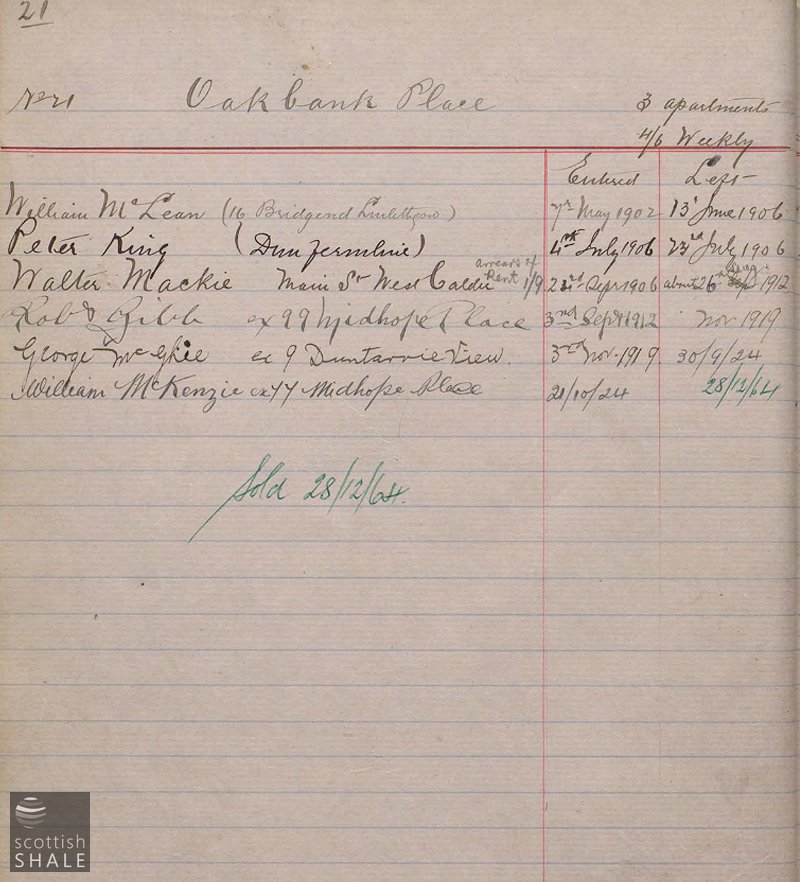 21
No 21 Oakbank Place 3 apartments
4/6 Weekly
Entered Left
William McLean (16 Bridgend Linlithgow) May 1902 13 June 1906
Peter King (Dunfermline) 4th July 1906 23rd July 1906
Walter Mackie Main St West Calder arrears of Rent 1/9 Sept 1906 about 26 Aug 1912
Robt Gibb ex 99 Midhope Place 3rd Sept 1912 Nov 1919
George McGhie ex 9 Duntarvie View. 3rd Nov 1919. 30/9/24
William McKenzie ex 77 Midhope Place 21/10/24 28/12/64
Sold 28/12/64.
scottish
SHALE